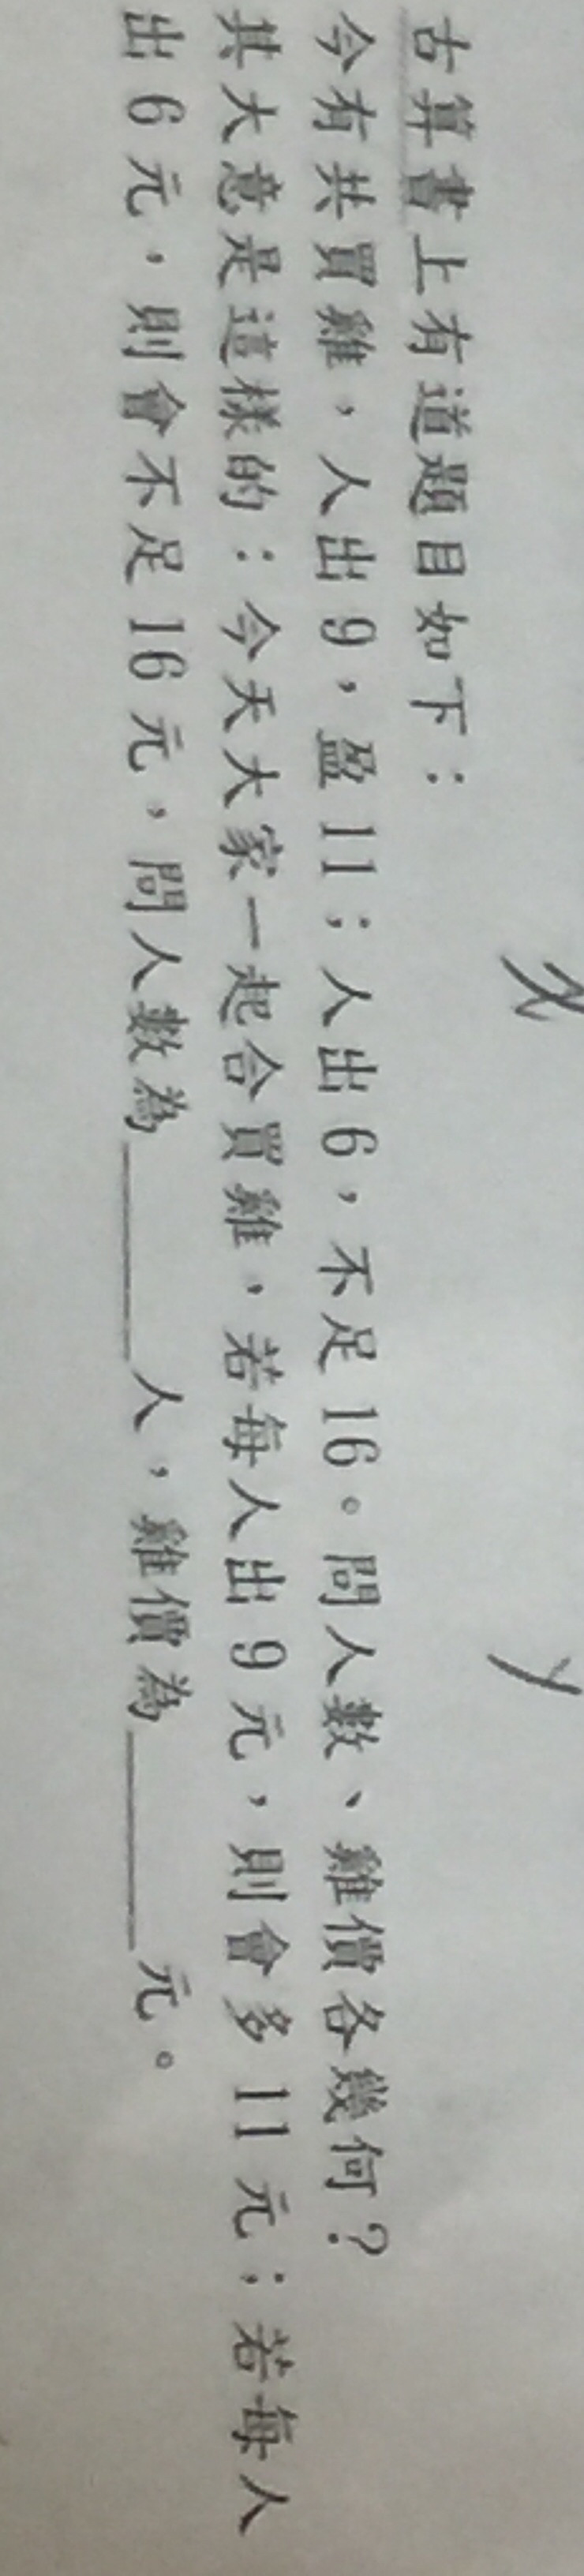 x y
古算書上有道題目如下：
今有共買雞，人出9，盈11；人出6，不足16。問人數、雞價各幾何？
其大意是這樣的：今天大家一起合買雞，若每人出9元，則會多11元；若每人
出6元，則會不足16元，問人數為______人，雞價為______元。